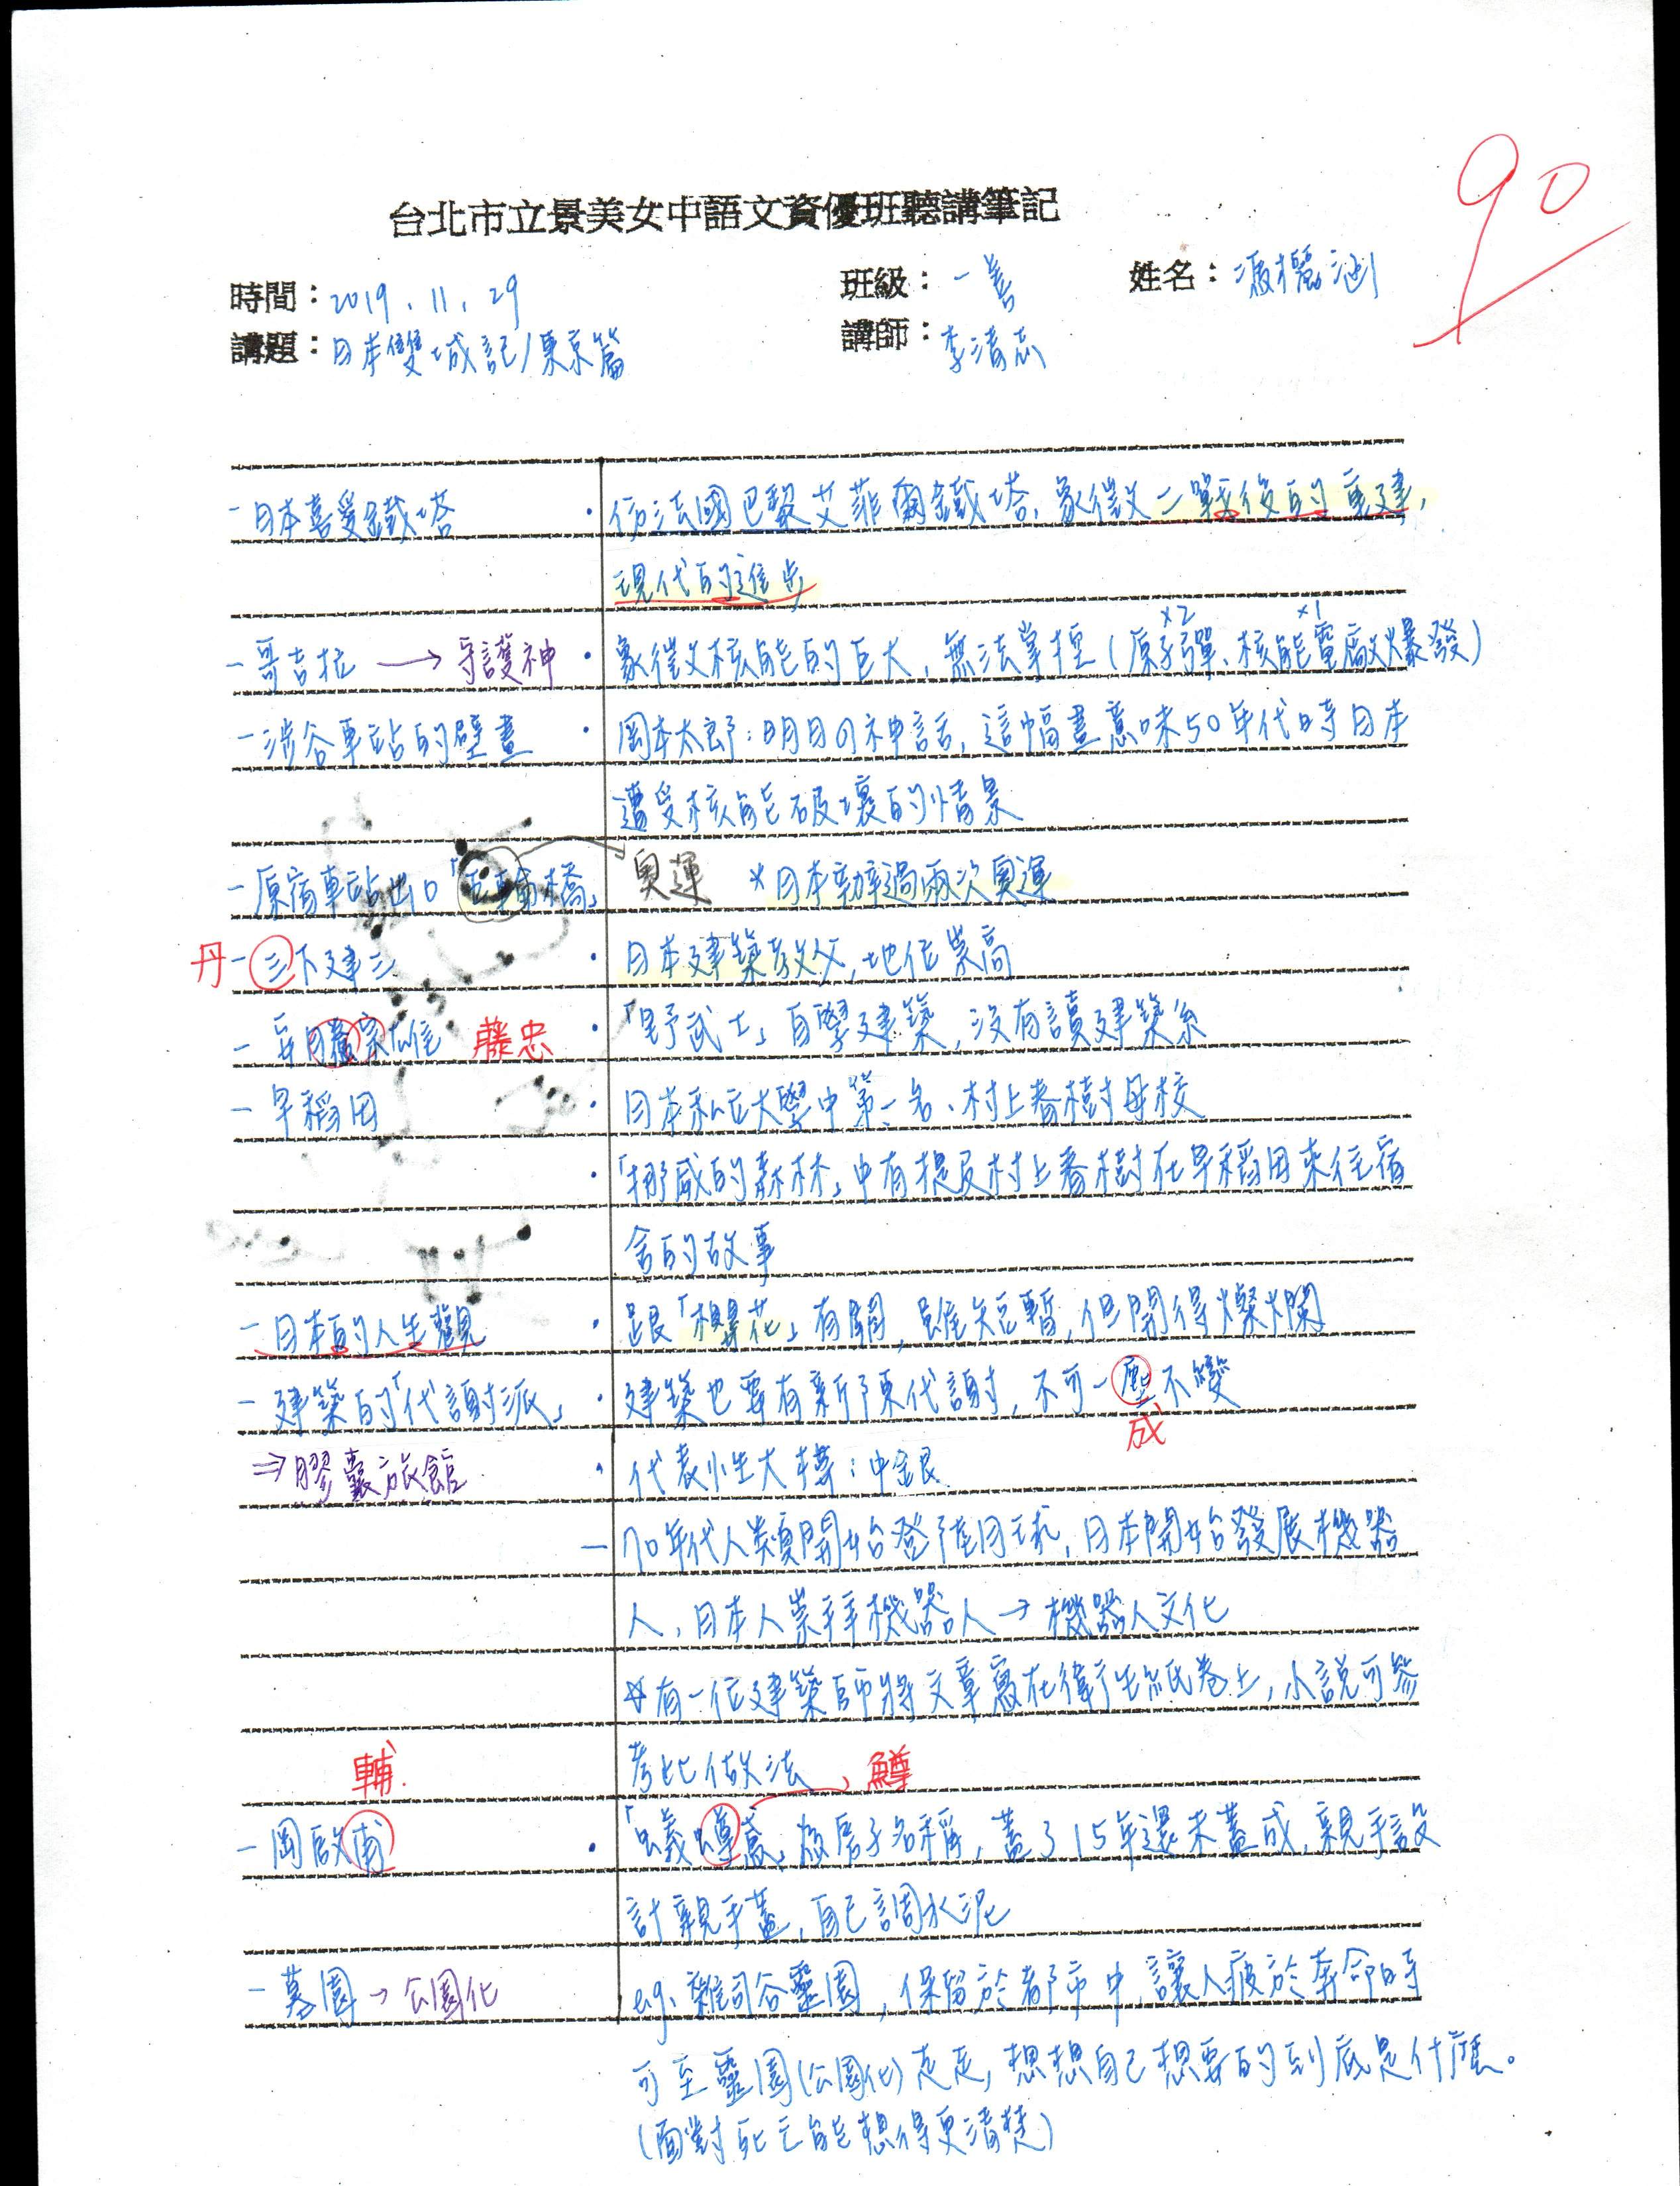 90
台北市立景美女中語文資優班聽講筆記
時間：2019.11.29 班級：一善 姓名：
講題：日本雙城記/東京篇 講師：李清志
-日本喜愛鐵塔 ・仿法國巴黎艾菲爾鐵塔、象徵二戰後的重建,
現代的進步
x2 x1
-哥吉拉 → 守護神 ・象徵核能的巨大,無法掌控(原子彈、核能電廠爆發)
-涉谷車站的壁畫 ・岡本太郎:明日の神話,這幅畫意味50年代時日本
遭受核能破壞的情景
-原宿車站出口「五輪橋」 奧運 *日本辦過兩次奧運
丹 -三下建三 ・日本建築教父,地位崇高
-安 雄 藤忠 ・「野武士」自學建築,沒有讀建築系
-早稻田 ・日本私立大學中第一名、村上春樹母校
・「挪威的森林」中有提及村上春樹在早稻田來往宿
舍的故事
-日本的人生觀 ・跟「櫻花」有關,雖短暫,但開得燦爛
-建築的「代謝派」 ・建築也要有新陳代謝,不可一塵不變
成
⇒膠囊旅館 ・代表性大樓:中銀
-70年代人類開始登陸月球,日本開始發展機器
人,日本人崇拜機器人→機器人文化
☆有一位建築師將文章寫在衛生紙卷上,小說可參
輔 考此做法 鱒
-岡啟甫 ・「蟻 鳶」為房子名稱,蓋了15年還未蓋成,親手設
計親手蓋,自己調水泥
-墓園→公園化 eg、雜司谷靈園,保留於都市中,讓人疲於奔命時
可至靈園(公園化)走走,想想自己想要的到底是什麼。
(面對死亡能想得更清楚)